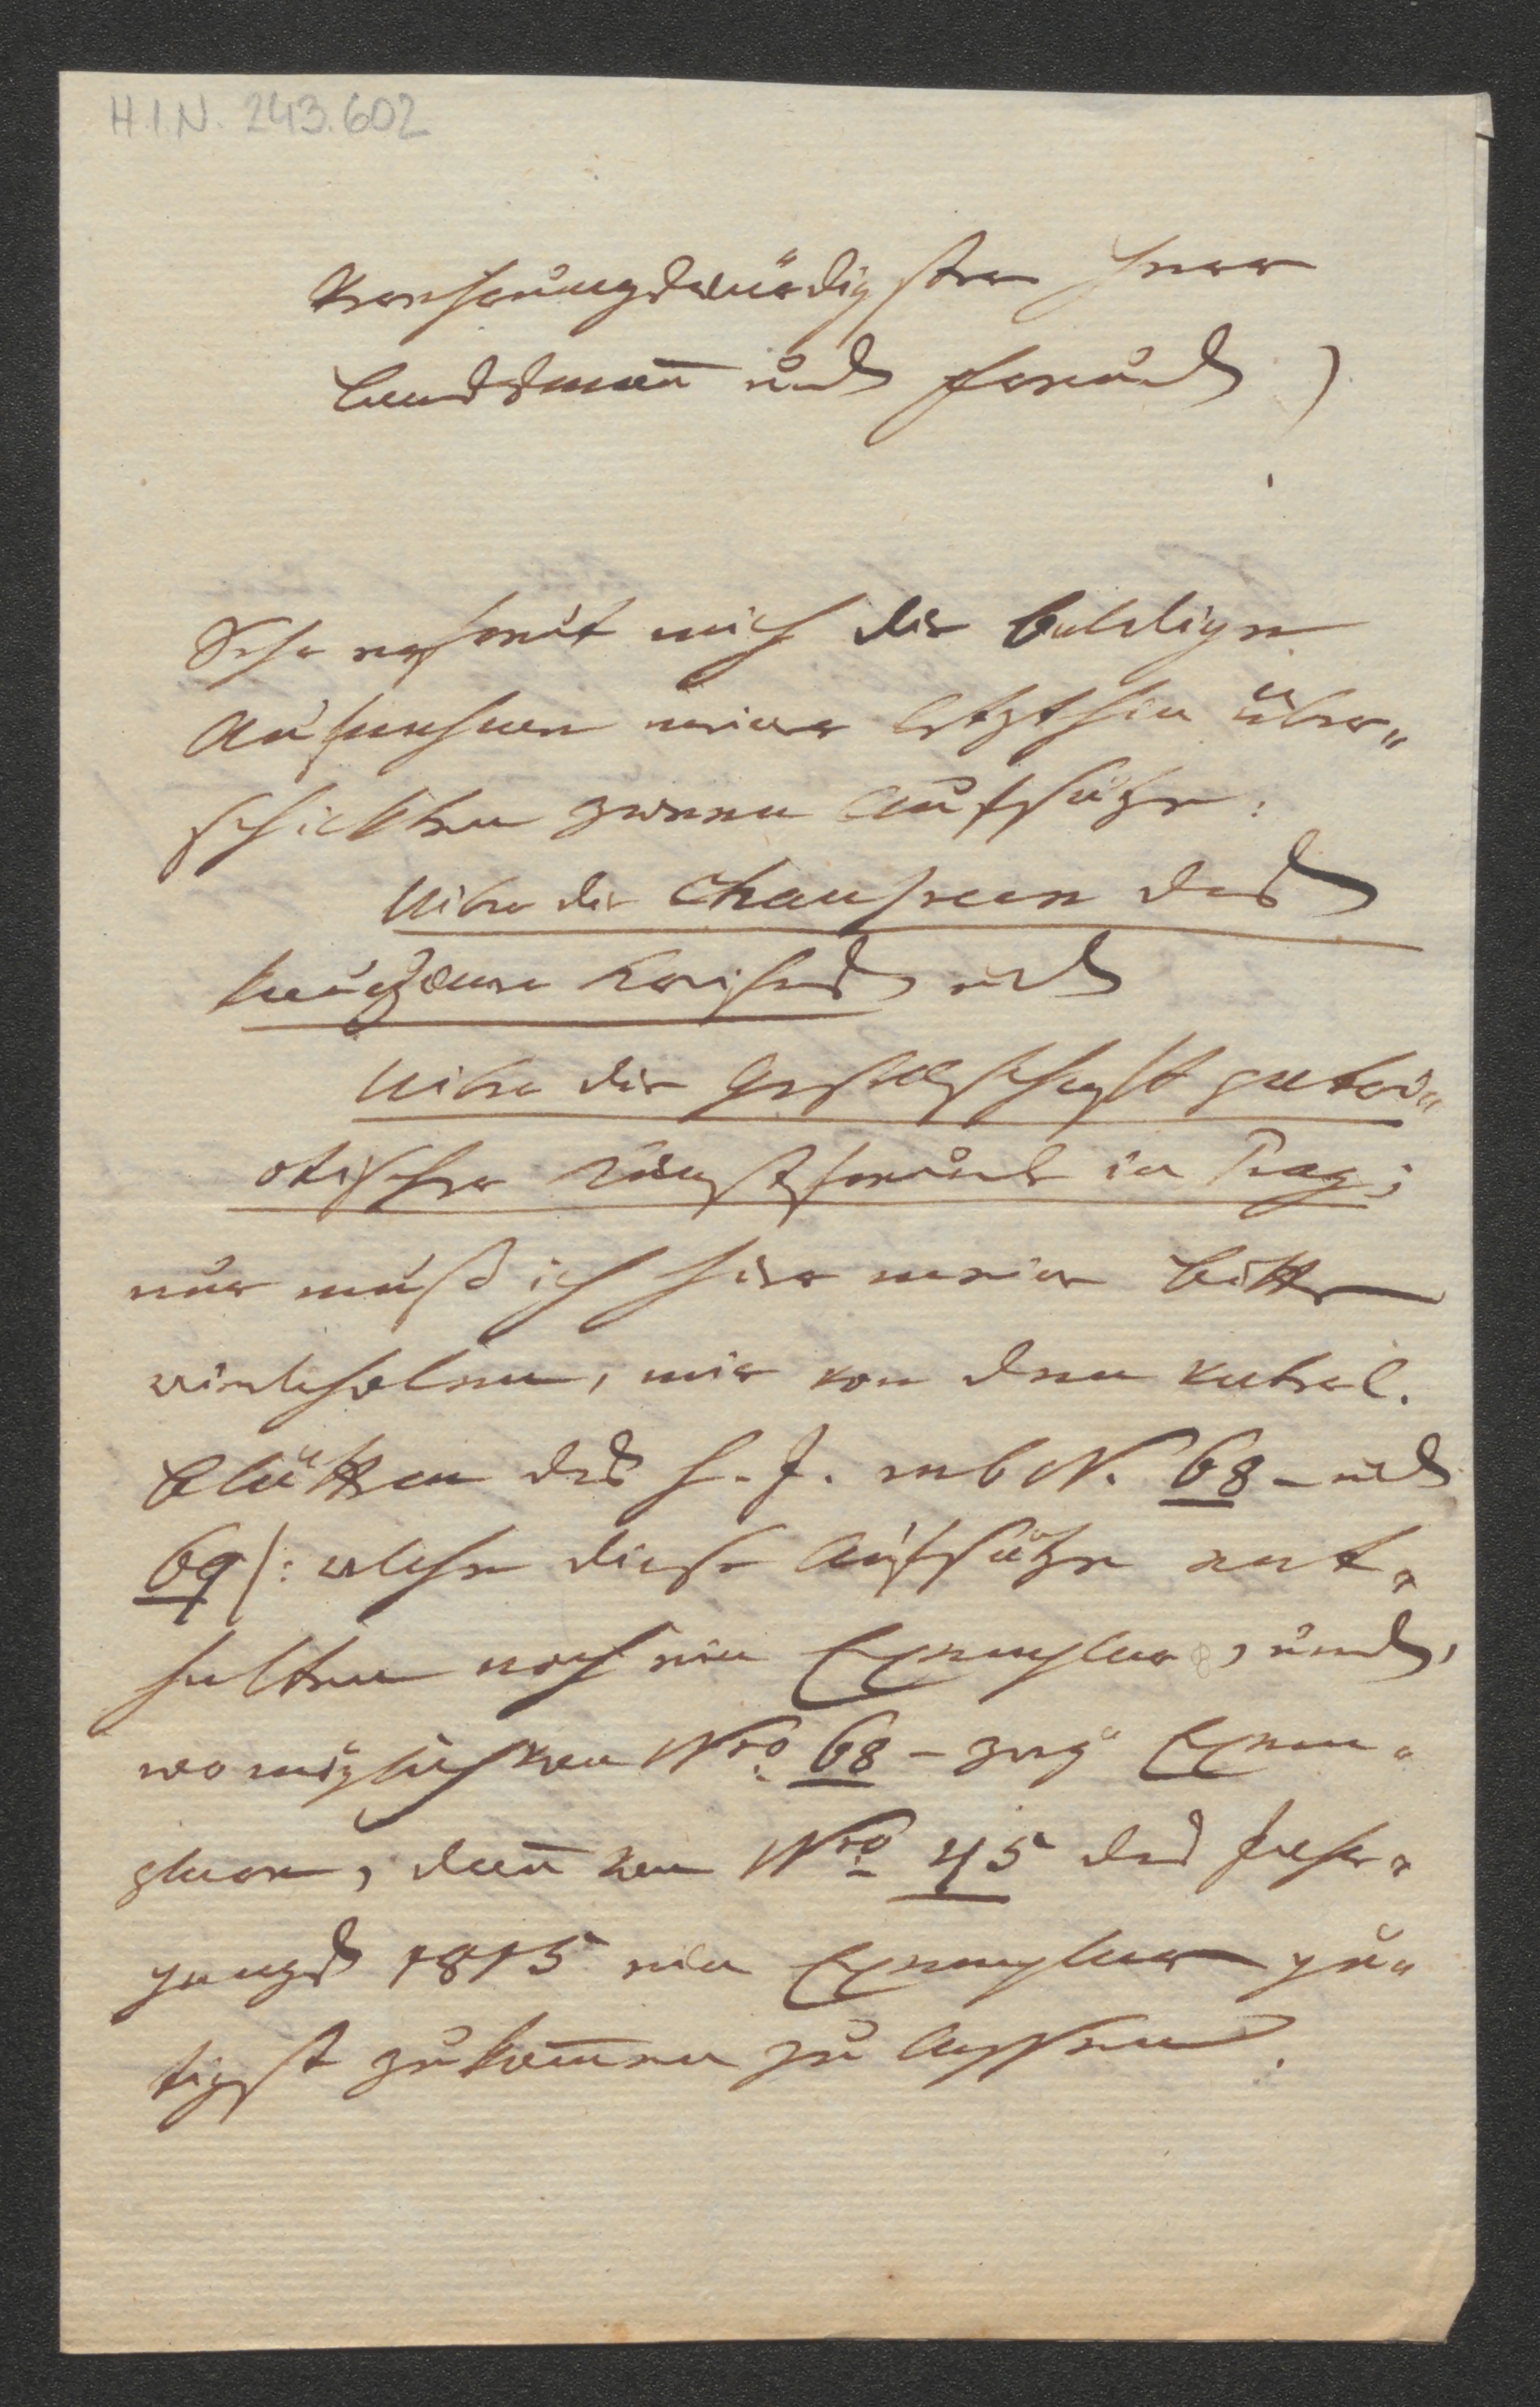 H.I.N. 243.602
Verehrungswürdigster Herr
Landsmañ und Freund
Sehr erfreut mich die baldige
Aufnahme meiner letzthin über„
schickten zween Aufsätze:
Uiber die Chausseen des
Kaurzimer Kreises, und
Uiber die Gesellschaft patri„
otischer Kunstfreunde in Prag;
nur muß ich hier meine Bitte
wiederholen, mir von den vaterl.
Blättern des h. J. N. 68 – und
69 /: welche diese Aufsätze ent„
halten noch ein Exemplar, und,
wo möglich von Nro. 68 – zwey Exem„
plare, dañ von Nro. 45 des Jahr„
gangs 1815 ein Exemplar gü„
tigst zukom̄en zu lassen.